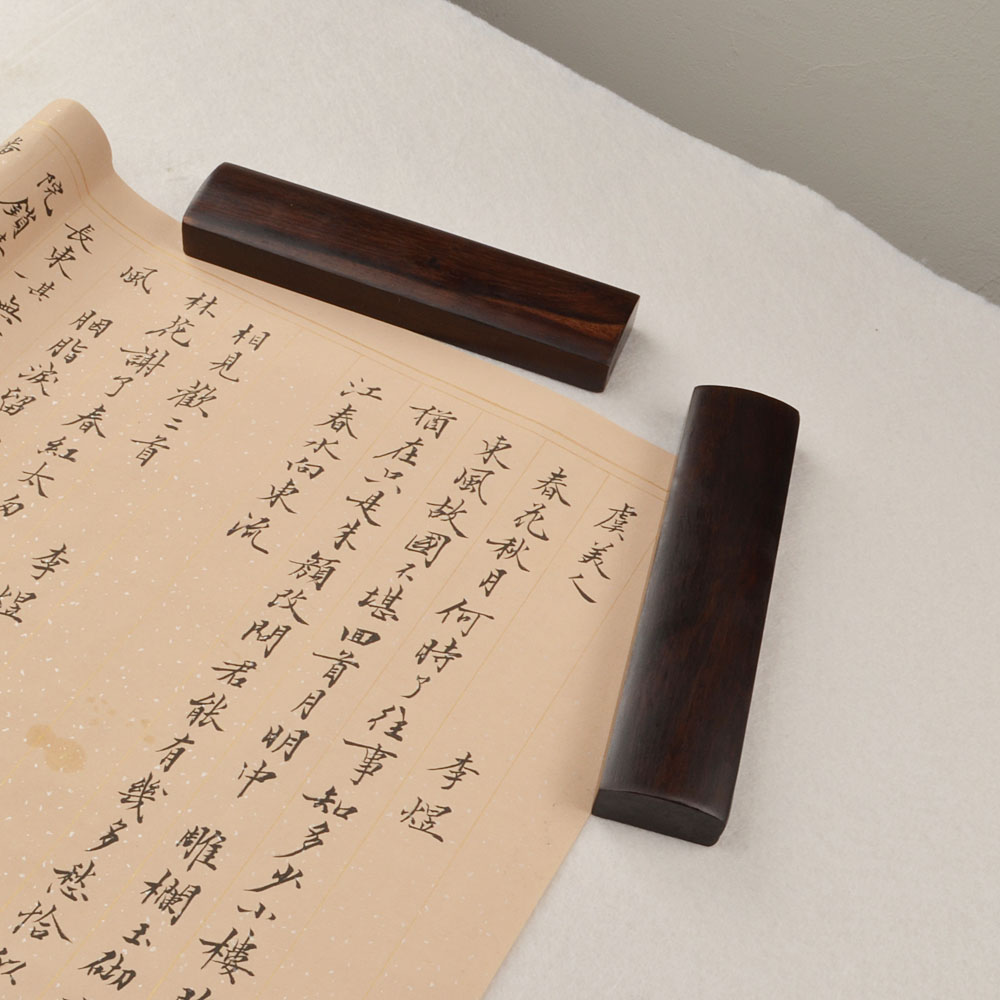 虞美人 李煜
春花秋月何時了往事知多少小樓
東風故國不堪回首月明中 雕欄玉砌
猶在只是朱顏改問君能有幾多愁恰似
江春水向東流
相見歡二首 李煜
林花謝了春紅太匆
風 胭脂淚留
長東 其一 無
院鎖